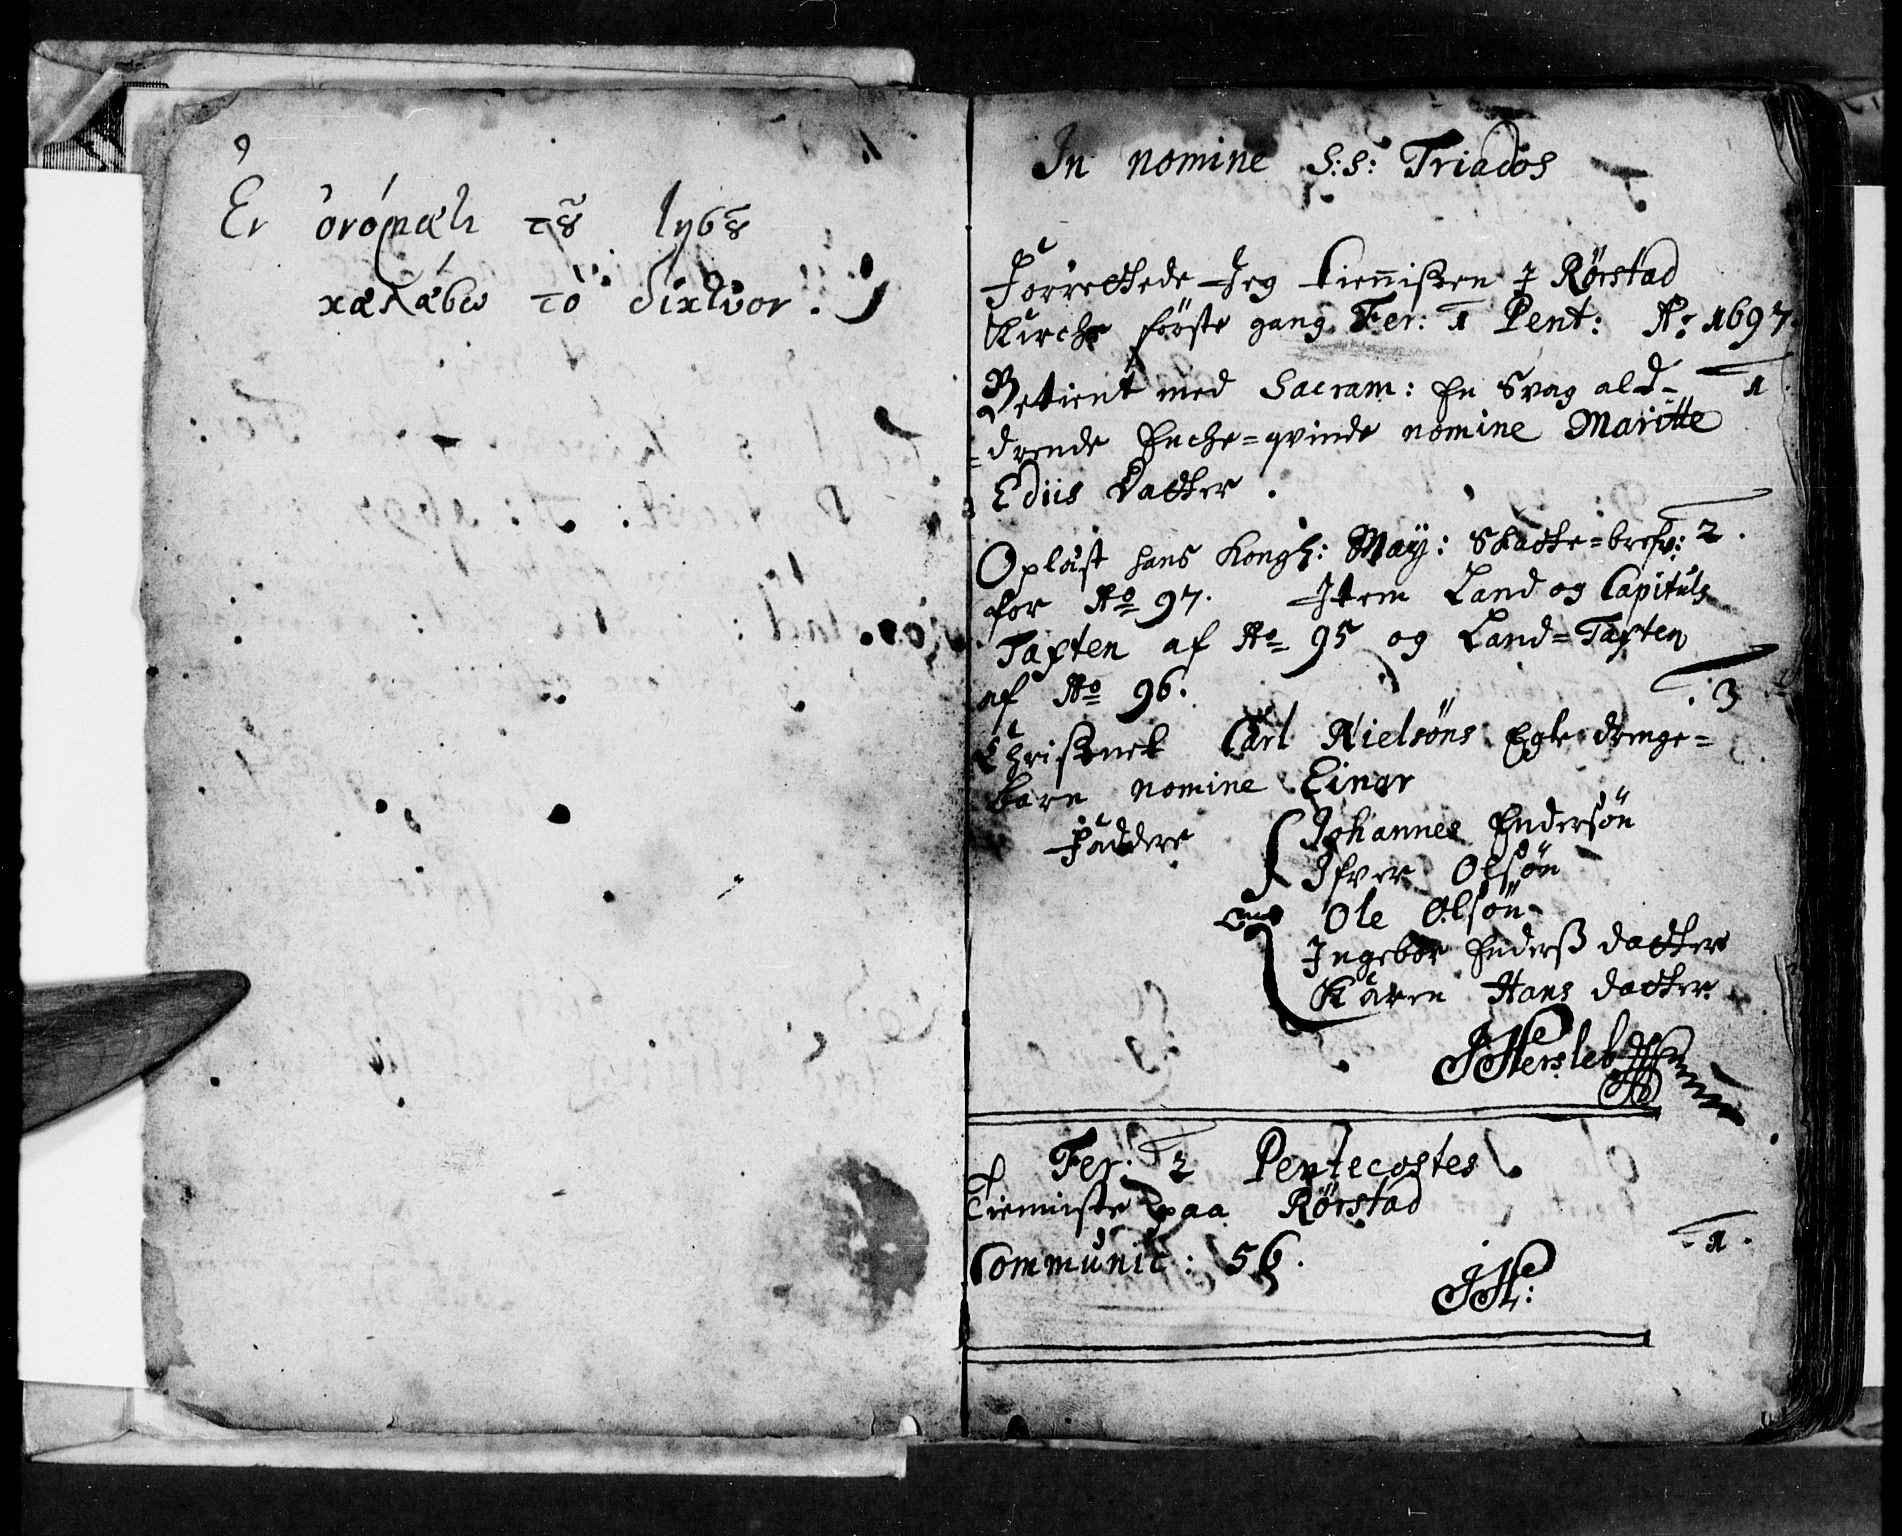 Ἐν ὀνόματι τῦ Ἰησῦ
χαλάσω τὸ δίκτυον.
In nomine S:S: Triados
Forrettede Jeg tiennisten J Rørstad
Kirche første gang Fer: 1 Pent: Ao: 1697.
Betient med Sacram: En Svag ald- 1.
=drende Enche=qvinde nomine Maritte
Ediis Datter.
Oplæst hans Kongl: May: Skatte=brefv: 2.
for Ao 97. Item Land og Capituls
Taxten af Ao 95 og Land=Taxten
af Ao 96. 3
Christnet Carl Nielsöns Egte drenge=
barn nomine Einar
Faddere Johannes Endersön
Ifver Olsön
Ole Olsön
Ingebor Enderß datter
Karen Hans datter.
JHersleb
Fer: 2 Pentecostes
Tienniste paa Rørstad
Communic: 56. 1.
JH: